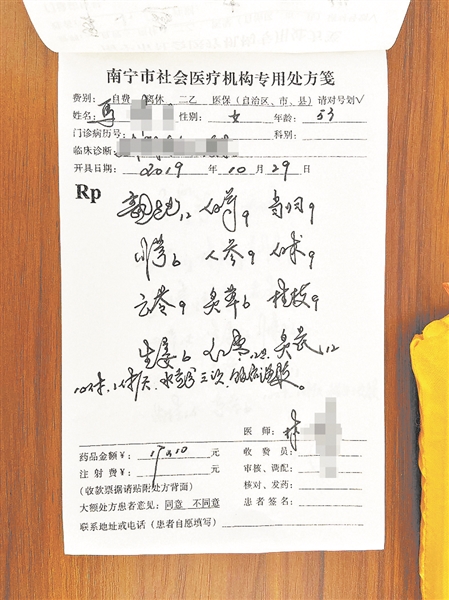 南宁市社会医疗机构专用处方笺
费别： 自费 离休 二乙 医保（自治区、市、县）请对号划√
姓名： 马 性别： 女 年龄： 53
门诊病历号： 科别：
临床诊断：
开具日期： 2019 年 10 月 29 日
Rp
熟地12 白芍9 当归9
川芎6 人参9 白术9
云苓9 炙草6 桂枝9
生姜6 炙芪12
10付，1付/天，水煎分三次，饭后温服。
医师： 林
药品金额¥： 元 收费员：
注射费¥： 元 审核、调配：
（收款票据请贴附处方背面） 核对、发药：
大额处方患者意见：同意 不同意 患者签名：
联系地址或电话（患者自愿填写）